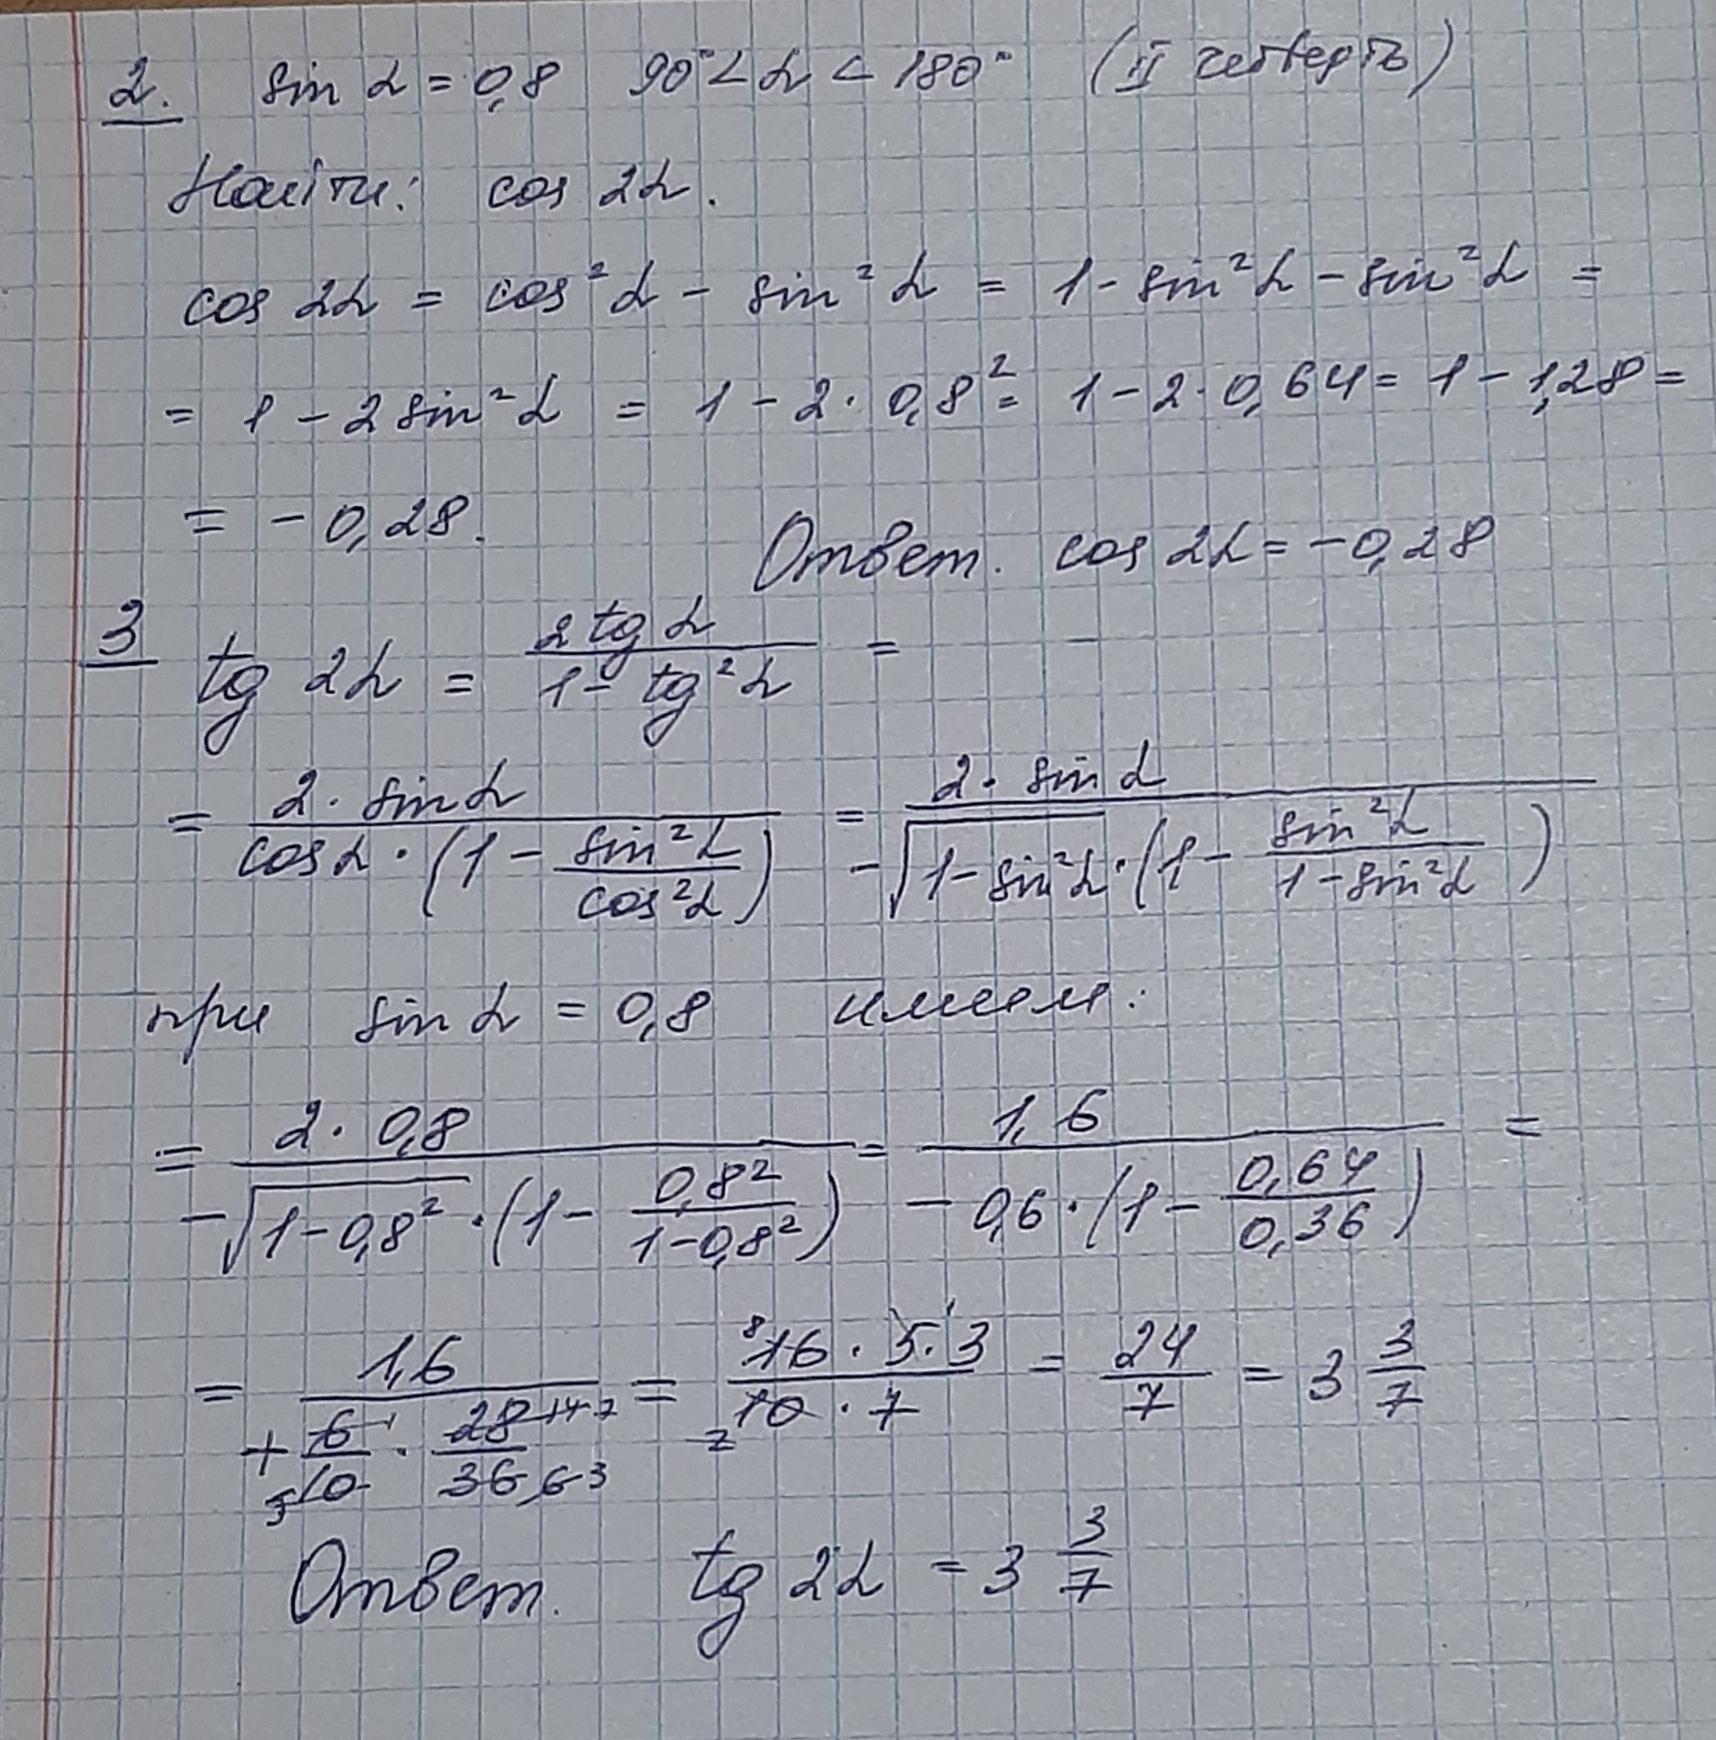 2. sin α = 0,8 90° < α < 180° (II четверть)
Найти: cos 2α.
cos 2α = cos²α - sin²α = 1 - sin²α - sin²α =
= 1 - 2 sin²α = 1 - 2 · 0,8² = 1 - 2 · 0,64 = 1 - 1,28 =
= -0,28. Ответ. cos 2α = -0,28
3 tg 2α = 2 tg α / (1 - tg²α) =
= 2 · sin α / (cos α · (1 - sin²α / cos²α)) = 2 · sin α / (-√(1 - sin²α) · (1 - sin²α / (1 - sin²α)))
при sin α = 0,8 имеем:
= 2 · 0,8 / (-√(1 - 0,8²) · (1 - 0,8² / (1 - 0,8²))) = 1,6 / (-0,6 · (1 - 0,64 / 0,36)) =
= 1,6 / (+ 6/10 · 28/36) = 16 · 5 · 3 / (10 · 7) = 24/7 = 3 3/7
Ответ. tg 2α = 3 3/7